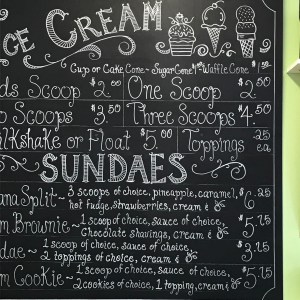 ICE CREAM
Cup or Cake Cone ~ Sugar Cone ~ Waffle Cone
ds Scoop $2.00 One Scoop $2
o Scoops $3.50 Three Scoops $4.50
lkshake or Float $5.00 Toppings .25 ea
SUNDAES
ana Split ~ 3 scoops of choice, pineapple, caramel, $6.25
hot fudge, strawberries, cream &
m Brownie ~ 1 scoop of choice, sauce of choice, $5.75
Chocolate shavings, cream &
dae ~ 1 scoop of choice, sauce of choice,
2 toppings of choice, cream &
m Cookie ~ 1 scoop of choice, sauce of choice, $5
2 cookies of choice, 1 topping, cream &